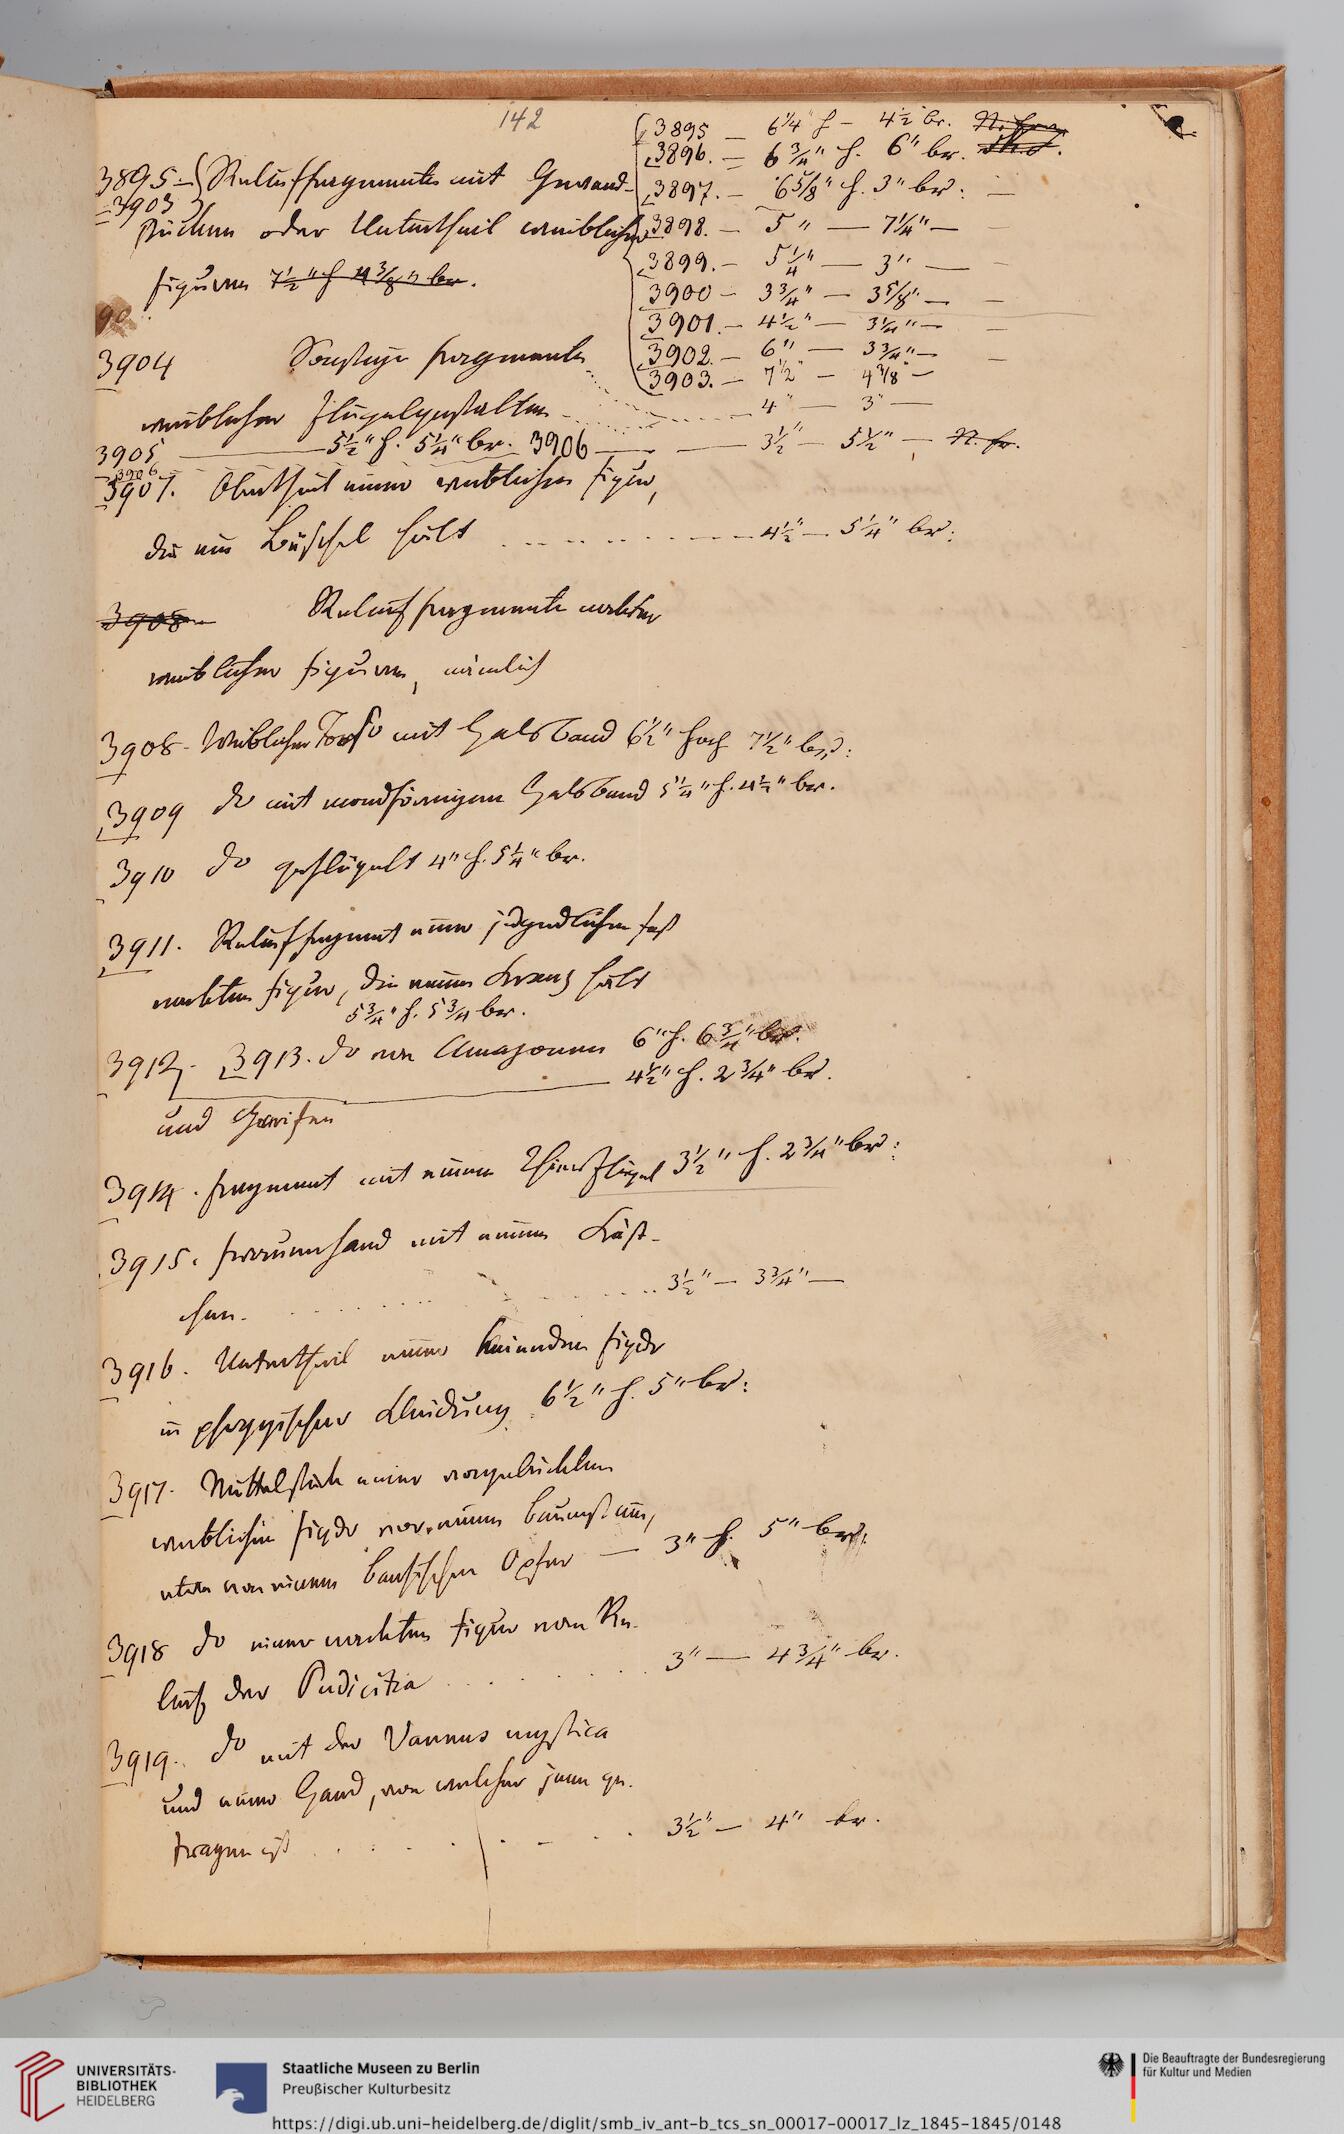 142
3895 — 6 1/4" h — 4 1/2 br.
3896. — 6 3/4" h. 6" br.
3897. — 6 5/8" h. 3" br: —
3898. — 5 " — 7 1/4" — —
3899. — 5 1/4" — 3" — —
3900 — 3 3/4" — 3 5/8" — —
3901. — 4 1/2" — 3 1/4" — —
3902. — 6" — 3 3/4" — —
3903. — 7 1/2" — 4 3/8" —
3895 — Relieffragmente mit Gewand-
—3903
stücken oder Untertheil weiblicher
Figuren 7 1/2" h 4 3/8" br.
90
3904 Sonstige Fragmente
weiblicher Flügelgestalten — 4" — 3" —
3905 — 5 1/2" h. 5 1/4" br. 3906 — — 3 1/2" — 5 1/2" — N. fr.
3906
3907. Obertheil einer weiblichen Figur,
die ein Büschel hält . . . . 4 1/2" — 5 1/4" br:
3908 Relieffragmente nackter
weiblicher Figuren, nämlich
3908. Weiblicher Torso mit Halsband 6 1/2" hoch 7 1/2" br:
3909 do mit mondförmigem Halsband 5 1/4" h. 4 1/2" br.
3910 do geflügelt 4" h. 5 1/4" br.
3911. Relieffragment einer jugendlichen fast
nackten Figur, die einen Kranz hält
5 3/4" h. 5 3/4 br.
3912. 3913. do von Amazonen 6" h. 6 3/4" br.
4 1/2" h. 2 3/4" br.
und Greifen
3914. Fragment mit einem Thierflügel 3 1/2" h. 2 3/4" br:
3915. Frauenhand mit einem Käst-
chen. . . . . 3 1/2" — 3 3/4" —
3916. Untertheil einer knieenden Figur
in phrygischer Kleidung. 6 1/2" h. 5" br:
3917. Mittelstück einer vorgebückten
weiblichen Figur vor einem Baumstamm,
etwa von einem bacchischen Opfer — 3" h. 5" br:
3918 do einer nackten Figur vom Re-
lief der Pudicitia . . . . 3" — 4 3/4" br.
3919. do mit der Vannus mystica
und einer Hand, von welcher jene ge-
tragen ist . . . . 3 1/2" — 4" br.
UNIVERSITÄTS-
BIBLIOTHEK
HEIDELBERG
Staatliche Museen zu Berlin
Preußischer Kulturbesitz
Die Beauftragte der Bundesregierung
für Kultur und Medien
https://digi.ub.uni-heidelberg.de/diglit/smb_iv_ant-b_tcs_sn_00017-00017_lz_1845-1845/0148